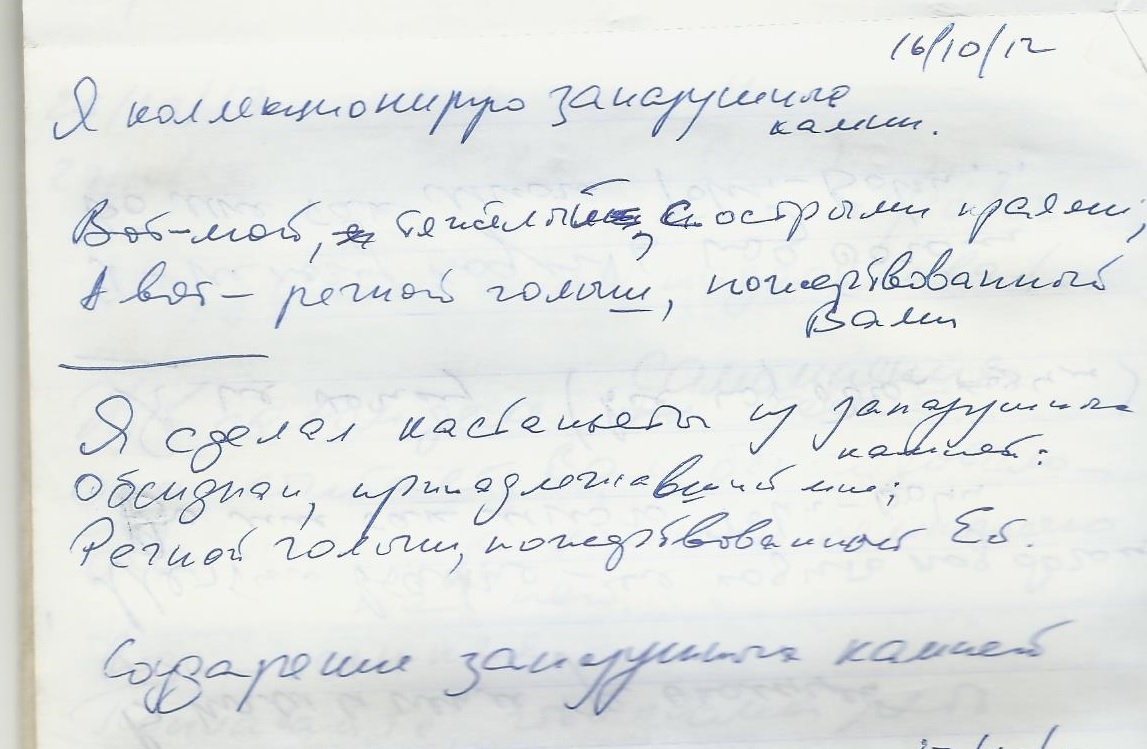 16/10/12
Я коллекционирую запазушные
камни.
Вот-мой, тяжёлый, с острыми краями;
А вот – речной голыш, пожертвованный
Вами
Я сделал кастаньеты из запазушных
камней:
Обсидиан, принадлежавший мне;
Речной голыш, пожертвованный Ей.
Соударение запазушных камней